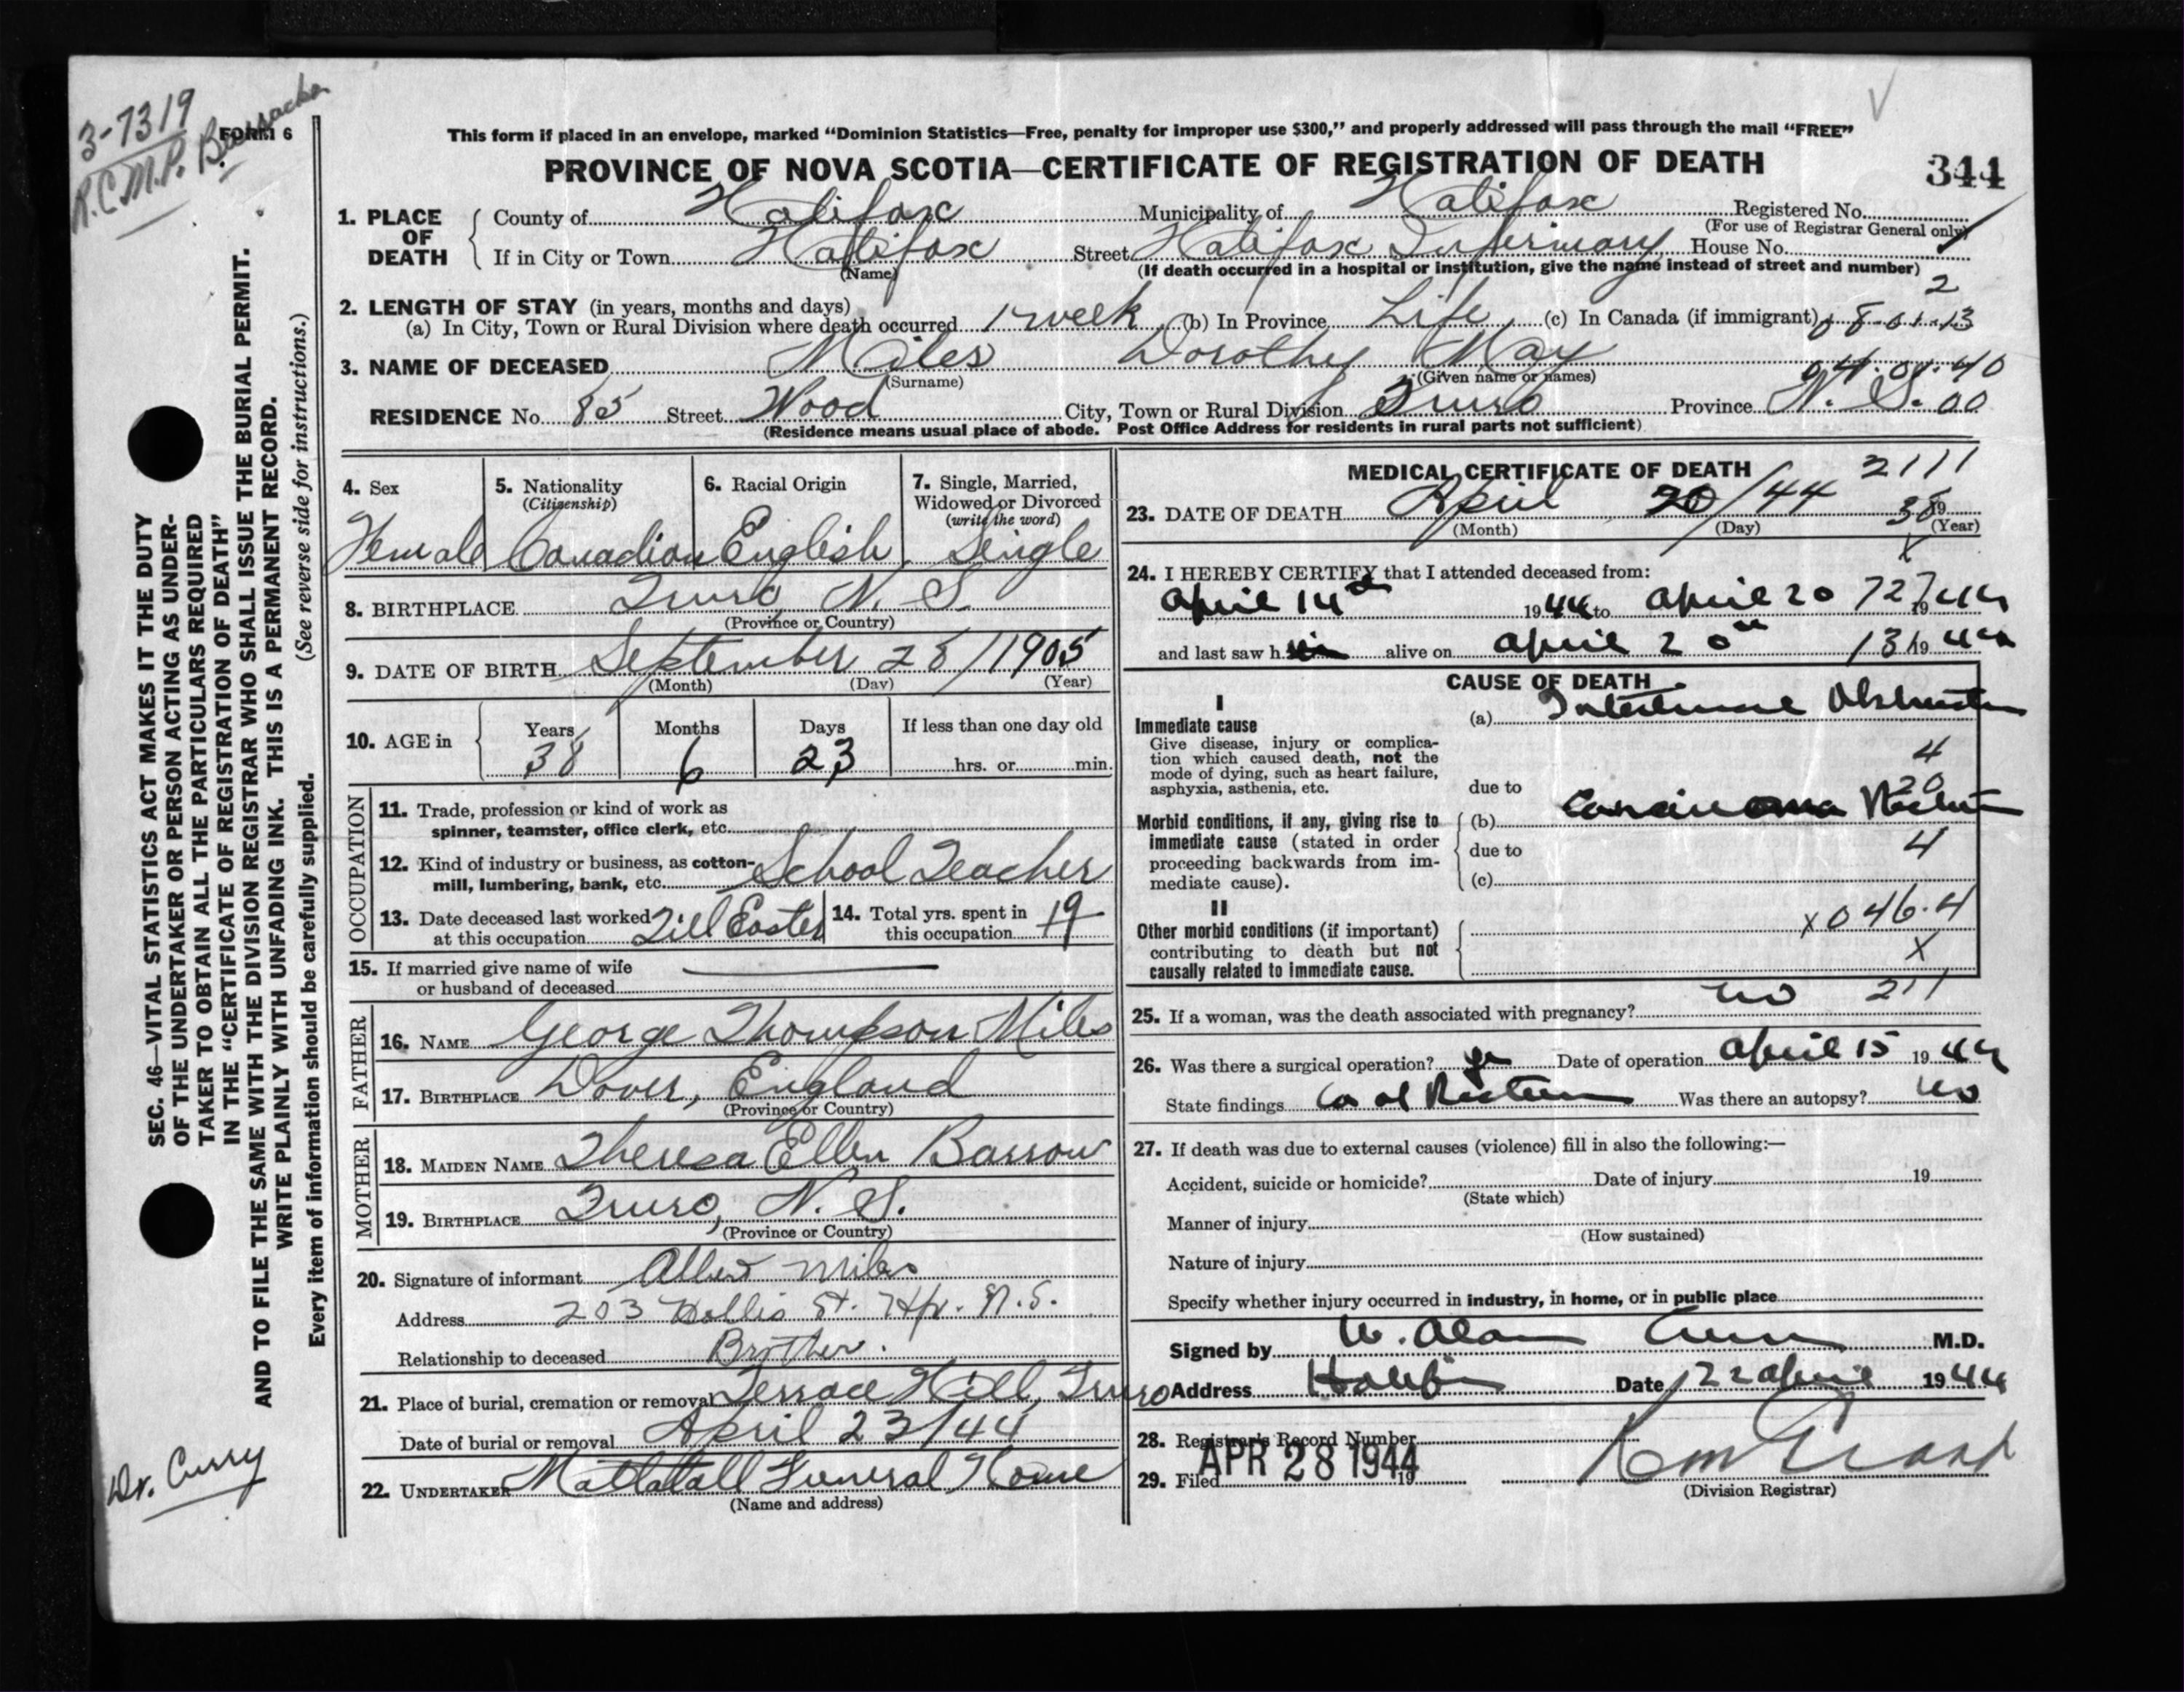 3-7319
R.C.M.P. Barracks
FORM 6
This form if placed in an envelope, marked “Dominion Statistics—Free, penalty for improper use $300,” and properly addressed will pass through the mail “FREE”
PROVINCE OF NOVA SCOTIA—CERTIFICATE OF REGISTRATION OF DEATH
344
1. PLACE OF DEATH
County of Halifax Municipality of Halifax Registered No.
(For use of Registrar General only)
If in City or Town Halifax Street Halifax Infirmary House No.
(Name) (If death occurred in a hospital or institution, give the name instead of street and number)
2
2. LENGTH OF STAY (in years, months and days)
(a) In City, Town or Rural Division where death occurred 1 week (b) In Province Life (c) In Canada (if immigrant) 08-01-13
3. NAME OF DECEASED Miles Dorothy May 04-01-40
(Surname) (Given name or names)
RESIDENCE No. 85 Street Wood City, Town or Rural Division Truro Province N.S. 00
(Residence means usual place of abode. Post Office Address for residents in rural parts not sufficient)
4. Sex
Female
5. Nationality
(Citizenship)
Canadian
6. Racial Origin
English
7. Single, Married,
Widowed or Divorced
(write the word)
Single
8. BIRTHPLACE Truro, N.S.
(Province or Country)
9. DATE OF BIRTH September 28/1905
(Month) (Day) (Year)
10. AGE in
Years Months Days If less than one day old
38 6 23 hrs. or min.
OCCUPATION
11. Trade, profession or kind of work as
spinner, teamster, office clerk, etc.
12. Kind of industry or business, as cotton-
mill, lumbering, bank, etc. School Teacher
13. Date deceased last worked
at this occupation Till Easter
14. Total yrs. spent in
this occupation 19
15. If married give name of wife
or husband of deceased
FATHER
16. NAME George Thompson Miles
17. BIRTHPLACE Dover, England
(Province or Country)
MOTHER
18. MAIDEN NAME Theresa Ellen Barrow
19. BIRTHPLACE Truro, N.S.
(Province or Country)
20. Signature of informant Albert Miles
Address 203 Hollis St. Hfx. N.S.
Relationship to deceased Brother.
21. Place of burial, cremation or removal Terrace Hill, Truro
Date of burial or removal April 23/44
22. UNDERTAKER Mattatall Funeral Home
(Name and address)
MEDICAL CERTIFICATE OF DEATH 2111
23. DATE OF DEATH April 20/44 38 19
(Month) (Day) (Year)
X
24. I HEREBY CERTIFY that I attended deceased from:
April 14th 1944 to April 20 727 1944
and last saw h alive on April 20th 131 1944
CAUSE OF DEATH
I
Immediate cause
Give disease, injury or complica-
tion which caused death, not the
mode of dying, such as heart failure,
asphyxia, asthenia, etc.
(a) Intestinal Obstruction
4
20
due to
Morbid conditions, if any, giving rise to
immediate cause (stated in order
proceeding backwards from im-
mediate cause).
(b) Carcinoma Rectum
due to 4
(c)
II
Other morbid conditions (if important)
contributing to death but not
causally related to immediate cause.
X 046.4
X
25. If a woman, was the death associated with pregnancy? no 211
26. Was there a surgical operation? yes Date of operation April 15 1944
State findings Ca of Rectum Was there an autopsy? no
27. If death was due to external causes (violence) fill in also the following:—
Accident, suicide or homicide? Date of injury 19
(State which)
Manner of injury
(How sustained)
Nature of injury
Specify whether injury occurred in industry, in home, or in public place
Signed by W. Alan Curry M.D.
Address Halifax Date 22 April 1944
28. Registrar's Record Number
29. Filed APR 28 1944 19
(Division Registrar)
SEC. 46—VITAL STATISTICS ACT MAKES IT THE DUTY
OF THE UNDERTAKER OR PERSON ACTING AS UNDER-
TAKER TO OBTAIN ALL THE PARTICULARS REQUIRED
IN THE “CERTIFICATE OF REGISTRATION OF DEATH”
AND TO FILE THE SAME WITH THE DIVISION REGISTRAR WHO SHALL ISSUE THE BURIAL PERMIT.
WRITE PLAINLY WITH UNFADING INK. THIS IS A PERMANENT RECORD.
Every item of information should be carefully supplied. (See reverse side for instructions.)
Dr. Curry